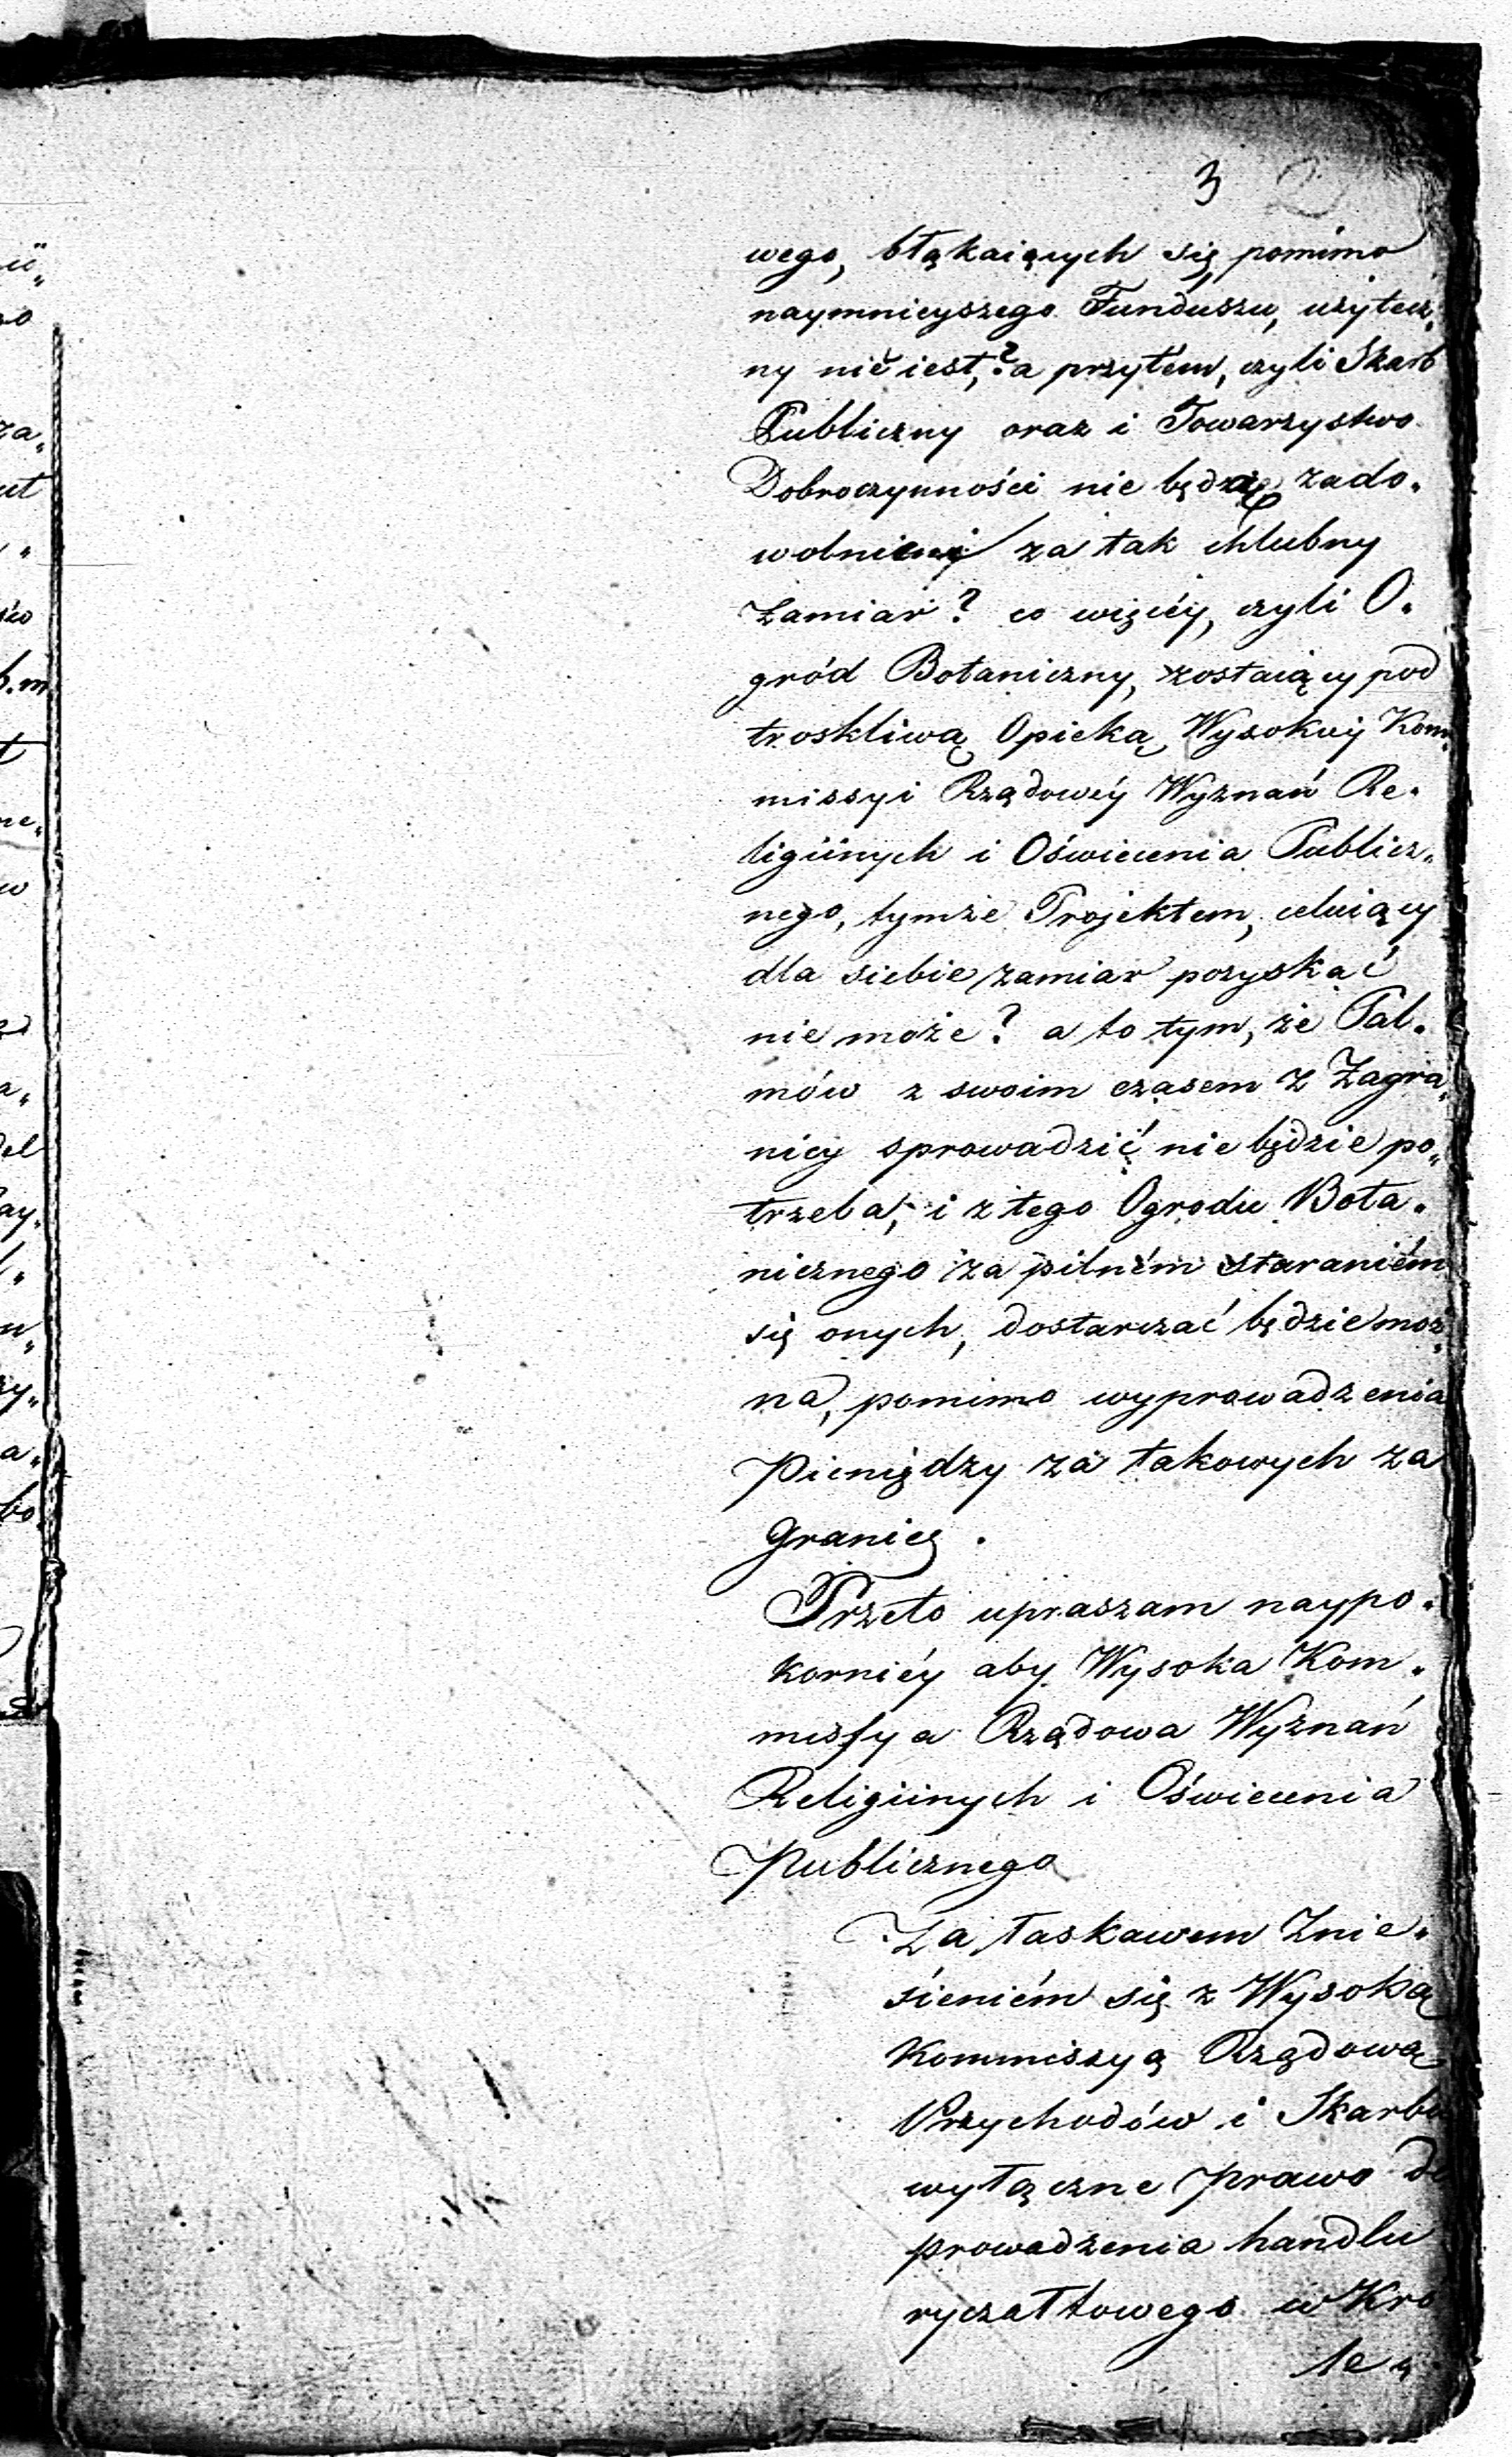 3
wego, błąkaiących się pomimo
naymnieyszego Funduszu, użytecz„
ny nie iest,? a przytém, czyli Skarb
Publiczny oraz i Towarzystwo
Dobroczynności nie będą zado„
wolnieni za tak chlubny
Zamiar? co więcéy, czyli O„
gród Botaniczny, zostaiący pod
troskliwą Opieką Wysokiéy Kom„
missyi Rządowéy Wyznań Re„
ligiinych i Oświecenia Publicz„
nego, tymże Projektem, celuiący
dla siebie zamiar pozyskać
nie może? a to tym, że Pal„
mów z swoim czasem z Zagra„
nicy sprowadzić nie będzie po„
trzeba, i z tego Ogrodu Bota„
nicznego za pilném staraniém
się onych, dostarczać będzie moż„
na, pomimo wyprowadzenia
Pieniędzy za takowych za
Granicę.
Przeto upraszam naypo„
korniéy aby Wysoka Kom„
missya Rządowa Wyznań
Religiinych i Oświecenia
Publicznego
Za łaskawem Znie„
sieniém się z Wysoką
Kommissyą Rządową
Przychodów i Skarbu
wyłączne prawo do
prowadzenia handlu
ryczałtowego w Kró
le„